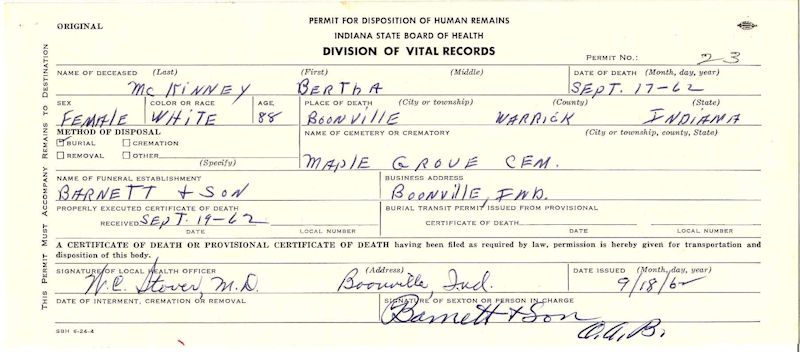 ORIGINAL
PERMIT FOR DISPOSITION OF HUMAN REMAINS
INDIANA STATE BOARD OF HEALTH
DIVISION OF VITAL RECORDS
PERMIT NO.: 23
THIS PERMIT MUST ACCOMPANY REMAINS TO DESTINATION
NAME OF DECEASED (Last) (First) (Middle) DATE OF DEATH (Month, day, year)
McKINNEY BERTHA SEPT. 17-62
SEX COLOR OR RACE AGE PLACE OF DEATH (City or township) (County) (State)
FEMALE WHITE 88 BOONVILLE WARRICK INDIANA
METHOD OF DISPOSAL NAME OF CEMETERY OR CREMATORY (City or township, county, State)
BURIAL CREMATION
REMOVAL OTHER
(Specify) MAPLE GROVE CEM.
NAME OF FUNERAL ESTABLISHMENT BUSINESS ADDRESS
BARNETT + SON BOONVILLE, IND.
PROPERLY EXECUTED CERTIFICATE OF DEATH BURIAL TRANSIT PERMIT ISSUED FROM PROVISIONAL
RECEIVED SEPT. 19-62 CERTIFICATE OF DEATH
DATE LOCAL NUMBER DATE LOCAL NUMBER
A CERTIFICATE OF DEATH OR PROVISIONAL CERTIFICATE OF DEATH having been filed as required by law, permission is hereby given for transportation and
disposition of this body.
SIGNATURE OF LOCAL HEALTH OFFICER (Address) DATE ISSUED (Month, day, year)
W.C. Stover, M.D. Boonville, Ind. 9/18/62
DATE OF INTERMENT, CREMATION OR REMOVAL SIGNATURE OF SEXTON OR PERSON IN CHARGE
Barnett + Son
O.A.B.
SBH 6-24-4